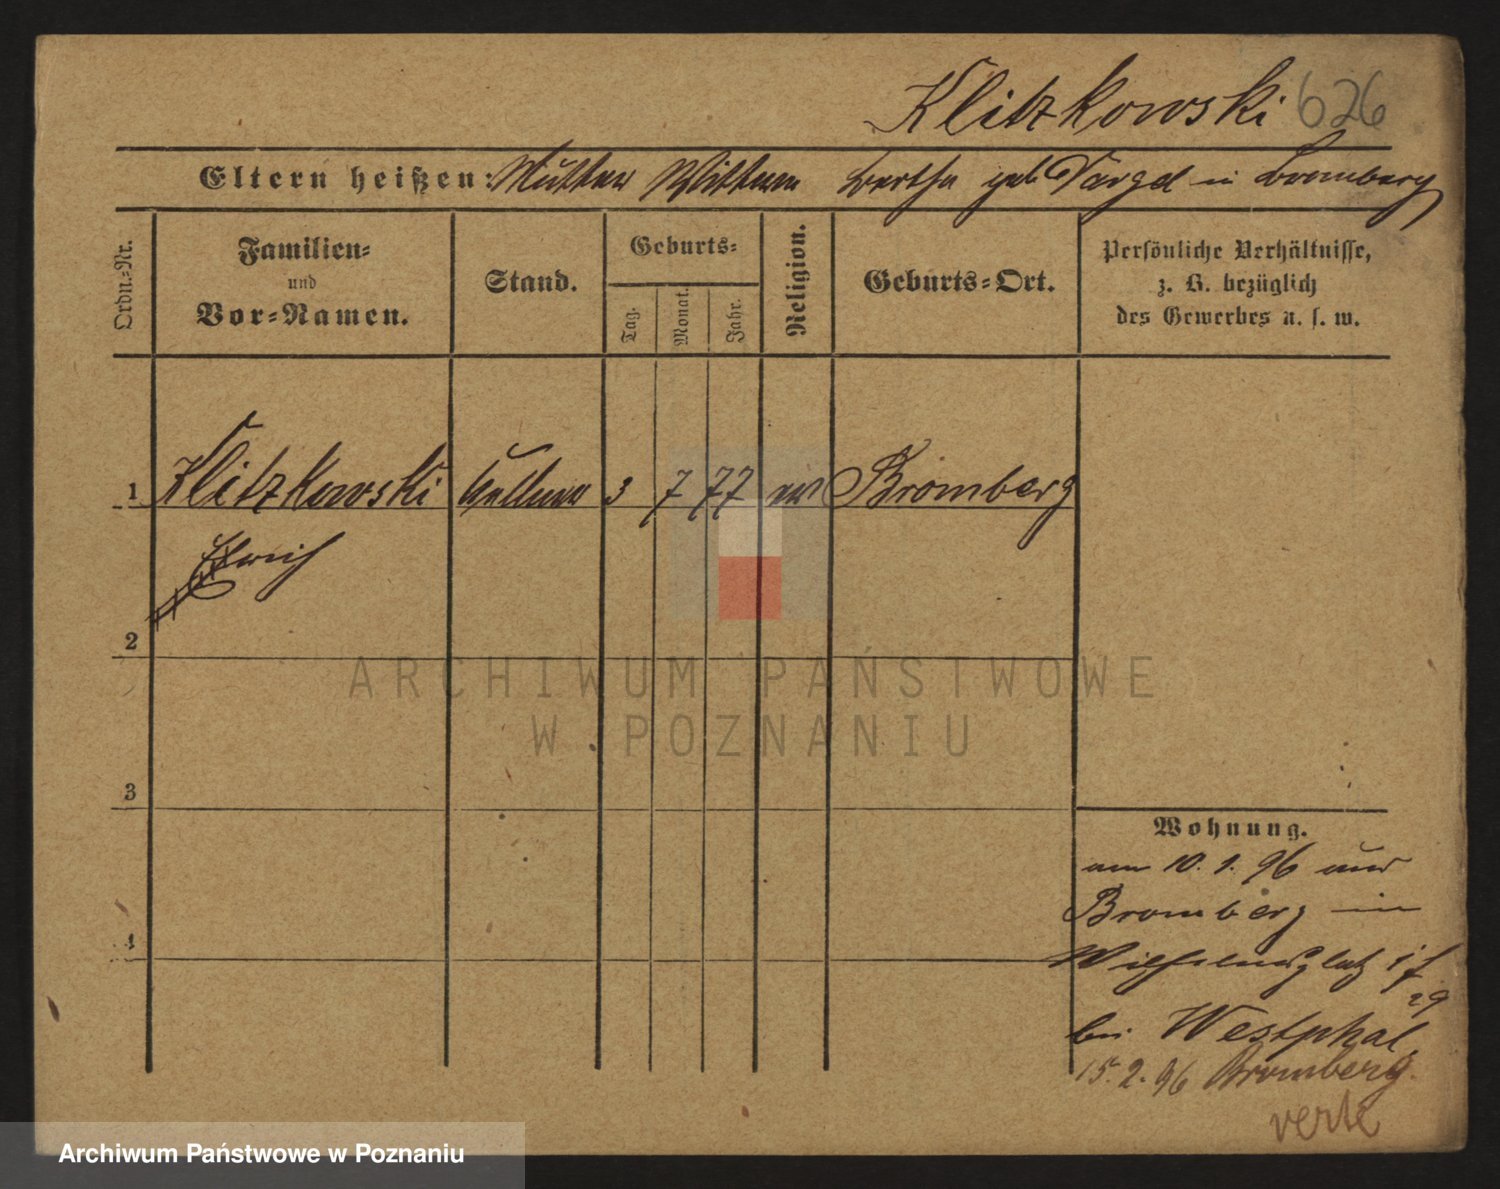 Klitzkowski 626
Eltern heißen: Mutter Wittwe Bertha geb. Targel in Bromberg
Ordn.-Nr.
Familien-
und
Vor-Namen.
Stand.
Geburts-
Tag.
Monat.
Jahr.
Religion.
Geburts-Ort.
Persönliche Verhältnisse,
z. B. bezüglich
des Gewerbes u. s. w.
1 Klitzkowski Kellner 3 7 77 ev Bromberg
2
3
4
Wohnung.
am 10. 1. 96 aus
Bromberg in
Wilhelmsplatz
bei Westphal
15. 2. 96 Bromberg.
verte
ARCHIWUM PAŃSTWOWE
W POZNANIU
Archiwum Państwowe w Poznaniu